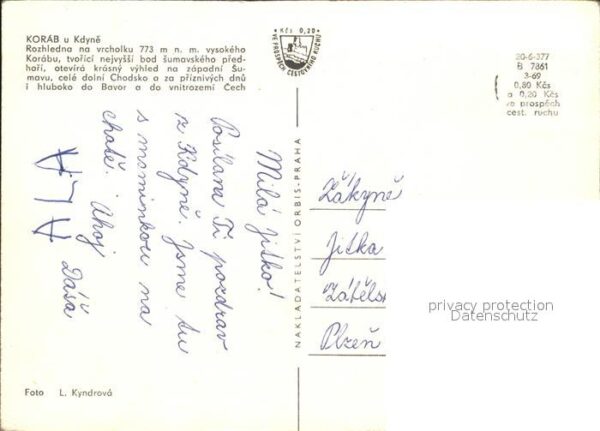 KORÁB u Kdyně
Rozhledna na vrcholku 773 m n. m. vysokého
Korábu, tvořící nejvyšší bod šumavského před-
hoří, otevírá krásný výhled na západní Šu-
mavu, celé dolní Chodsko a za příznivých dnů
i hluboko do Bavor a do vnitrozemí Čech
Kčs 0,20
VE PROSPĚCH CESTOVNÍHO RUCHU
20-6-377
B 7861
3-69
0,80 Kčs
a 0,20 Kčs
ve prospěch
cest. ruchu
Milá Jitko!
Posílama Ti pozdrav
z Kdyně. Jsme tu
s maminkou na
chatě. Ahoj
Dáša
NAKLADATELSTVÍ ORBIS-PRAHA
Žákyně
Jitka
Plzeň
privacy protection
Datenschutz
Foto L. Kyndrová